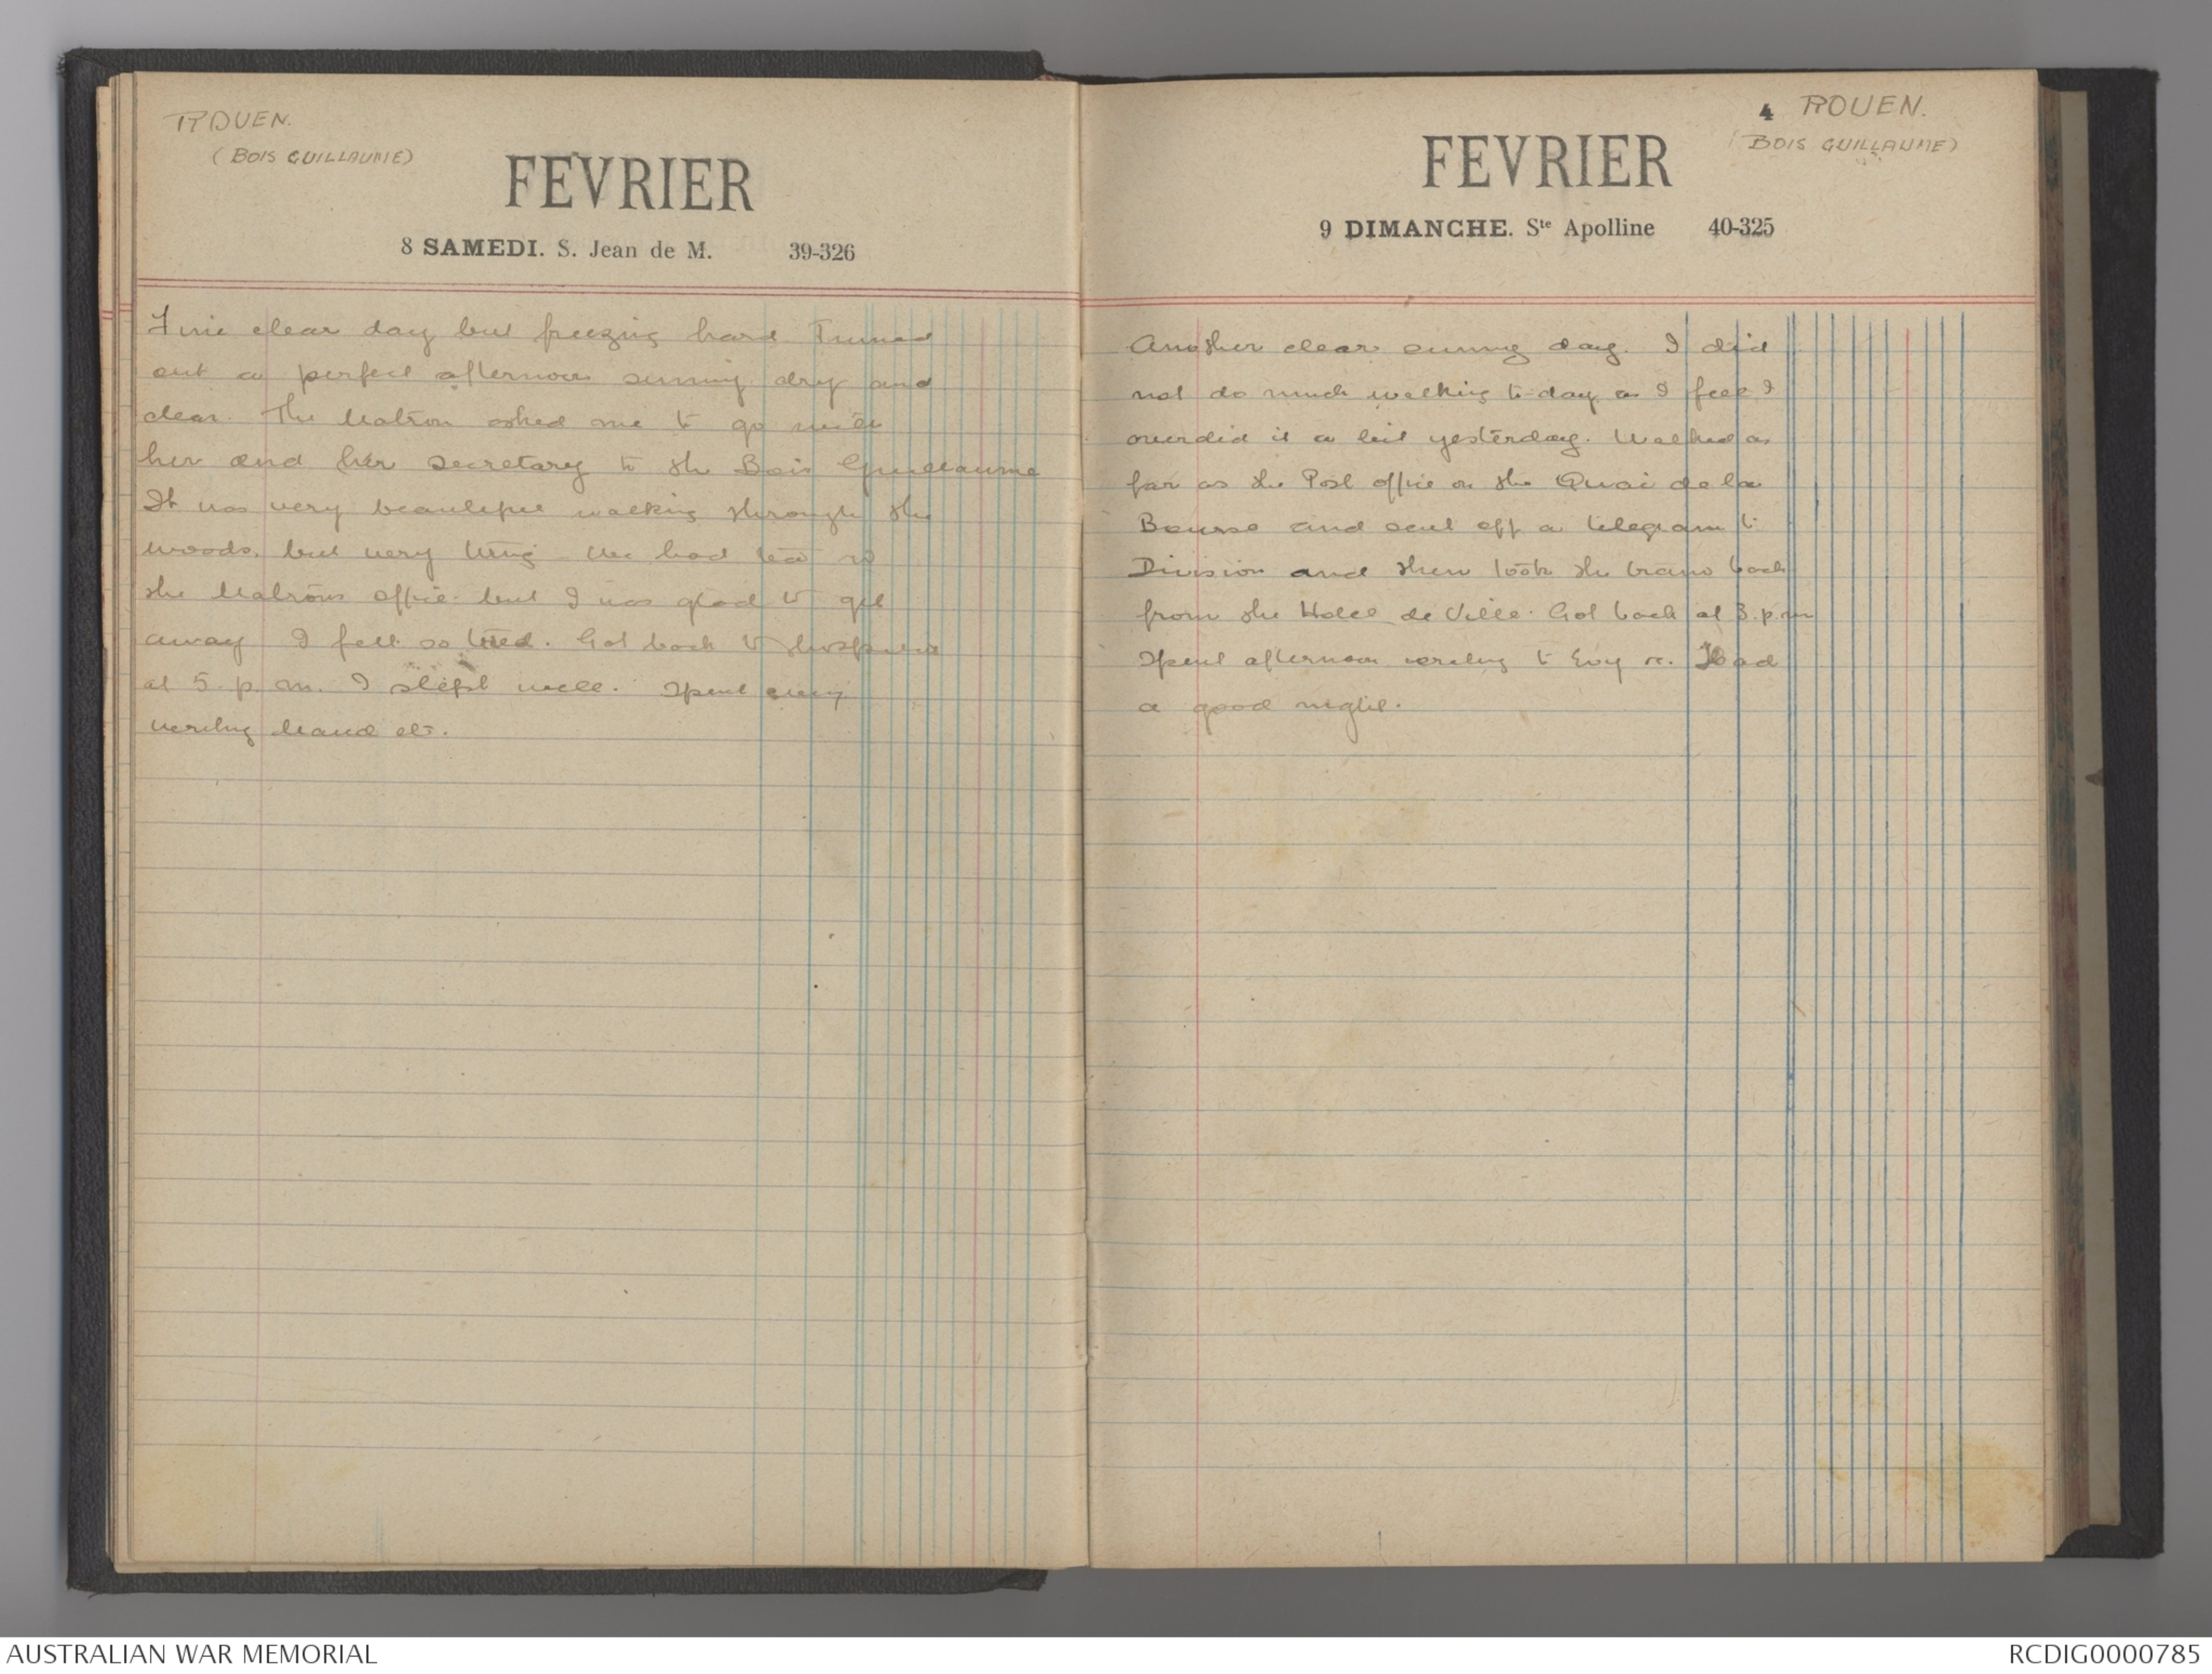 ROUEN.
(BOIS GUILLAUME)
FEVRIER
8 SAMEDI. S. Jean de M. 39-326
Fine clear day but freezing hard Turned
out a perfect afternoon sunny dry and
clear. The Matron asked me to go with
her and her secretary to the Bois Guillaume
It was very beautiful walking through the
woods, but very tiring We had tea in
the Matrons office but I was glad to get
away I felt so tired. Got back to
at 5. p. m. I slept well. Spent
writing Maud etc.
4 ROUEN.
(BOIS GUILLAUME)
FEVRIER
9 DIMANCHE. Ste Apolline 40-325
Another clear sunny day. I did
not do much walking to-day as I feel I
overdid it a bit yesterday. Walked as
far as the Post office on the Quai de la
Bourse and sent off a telegram to
Division and then took the tram back
from the Hotel de Ville. Got back at 3. p.m
Spent afternoon writing to Evy. Had
a good night.
AUSTRALIAN WAR MEMORIAL
RCDIG0000785